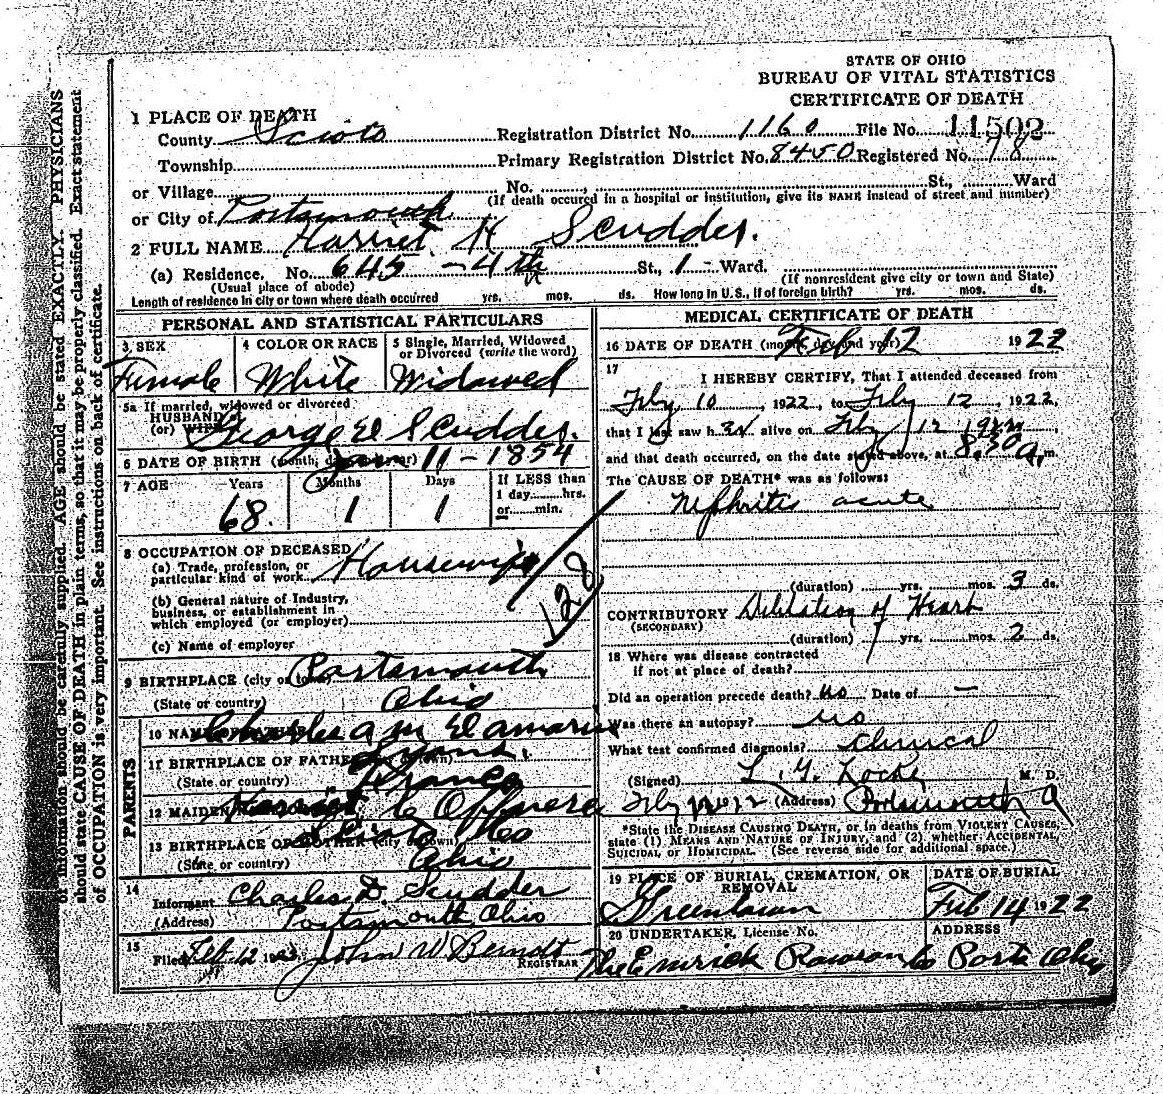 STATE OF OHIO
BUREAU OF VITAL STATISTICS
CERTIFICATE OF DEATH
1 PLACE OF DEATH
County Scioto Registration District No. 1160 File No. 11502
Township Primary Registration District No. 8450 Registered No. 78
or Village No. , St., Ward
(If death occured in a hospital or institution, give its NAME instead of street and number)
or City of Portsmouth
2 FULL NAME Harriet H Scudder.
(a) Residence. No. 645 - 4th St., 1 - Ward.
(Usual place of abode) (If nonresident give city or town and State)
Length of residence in city or town where death occurred yrs. mos. ds. How long in U.S., if of foreign birth? yrs. mos. ds.
PERSONAL AND STATISTICAL PARTICULARS
3 SEX
Female
4 COLOR OR RACE
White
5 Single, Married, Widowed
or Divorced (write the word)
Widowed
5a If married, widowed or divorced
HUSBAND of
(or) WIFE of George E Scudder.
6 DATE OF BIRTH (month, day, and year) Jan 11 - 1854
7 AGE Years Months Days If LESS than
1 day hrs.
or min.
68. 1 1
8 OCCUPATION OF DECEASED
(a) Trade, profession, or
particular kind of work Housewife
(b) General nature of Industry,
business, or establishment in
which employed (or employer)
(c) Name of employer
128
9 BIRTHPLACE (city or town) Portsmouth
(State or country) Ohio
PARENTS
10 NAME OF FATHER Charles A M Damarin
11 BIRTHPLACE OF FATHER (city or town) Lyons,
(State or country) France
12 MAIDEN NAME Harriet C Offnere
13 BIRTHPLACE OF MOTHER (city or town) Scioto Co
(State or country) Ohio
14
Informant Charles D. Scudder
(Address) Portsmouth Ohio
15
Filed Feb 12 John W Berndt
REGISTRAR
MEDICAL CERTIFICATE OF DEATH
16 DATE OF DEATH (month, day, and year) Feb 12 1922
17
I HEREBY CERTIFY, That I attended deceased from
Feby 10, 1922, to Feby 12, 1922,
that I last saw her alive on Feby 12 1922,
and that death occurred, on the date stated above, at 8.30 a. m.
The CAUSE OF DEATH* was as follows:
Nephritis acute
(duration) yrs. mos. 3 ds.
CONTRIBUTORY Dilatation of Heart
(SECONDARY)
(duration) yrs. mos. 2 ds.
18 Where was disease contracted
if not at place of death?
Did an operation precede death? No Date of —
Was there an autopsy? no
What test confirmed diagnosis? Clinical
(Signed) L. G. Locke M. D.
Feby 1922 (Address) Portsmouth O
*State the DISEASE CAUSING DEATH, or in deaths from VIOLENT CAUSES,
state (1) MEANS AND NATURE OF INJURY, and (2) whether ACCIDENTAL,
SUICIDAL or HOMICIDAL. (See reverse side for additional space.)
19 PLACE OF BURIAL, CREMATION, OR
REMOVAL
Greenlawn
DATE OF BURIAL
Feb 14 1922
20 UNDERTAKER, License No.
The Emrick Rawson Co
ADDRESS
Ports Ohio
of information should be carefully supplied. AGE should be stated EXACTLY. PHYSICIANS
should state CAUSE OF DEATH in plain terms, so that it may be properly classified. Exact statement
of OCCUPATION is very important. See instructions on back of certificate.